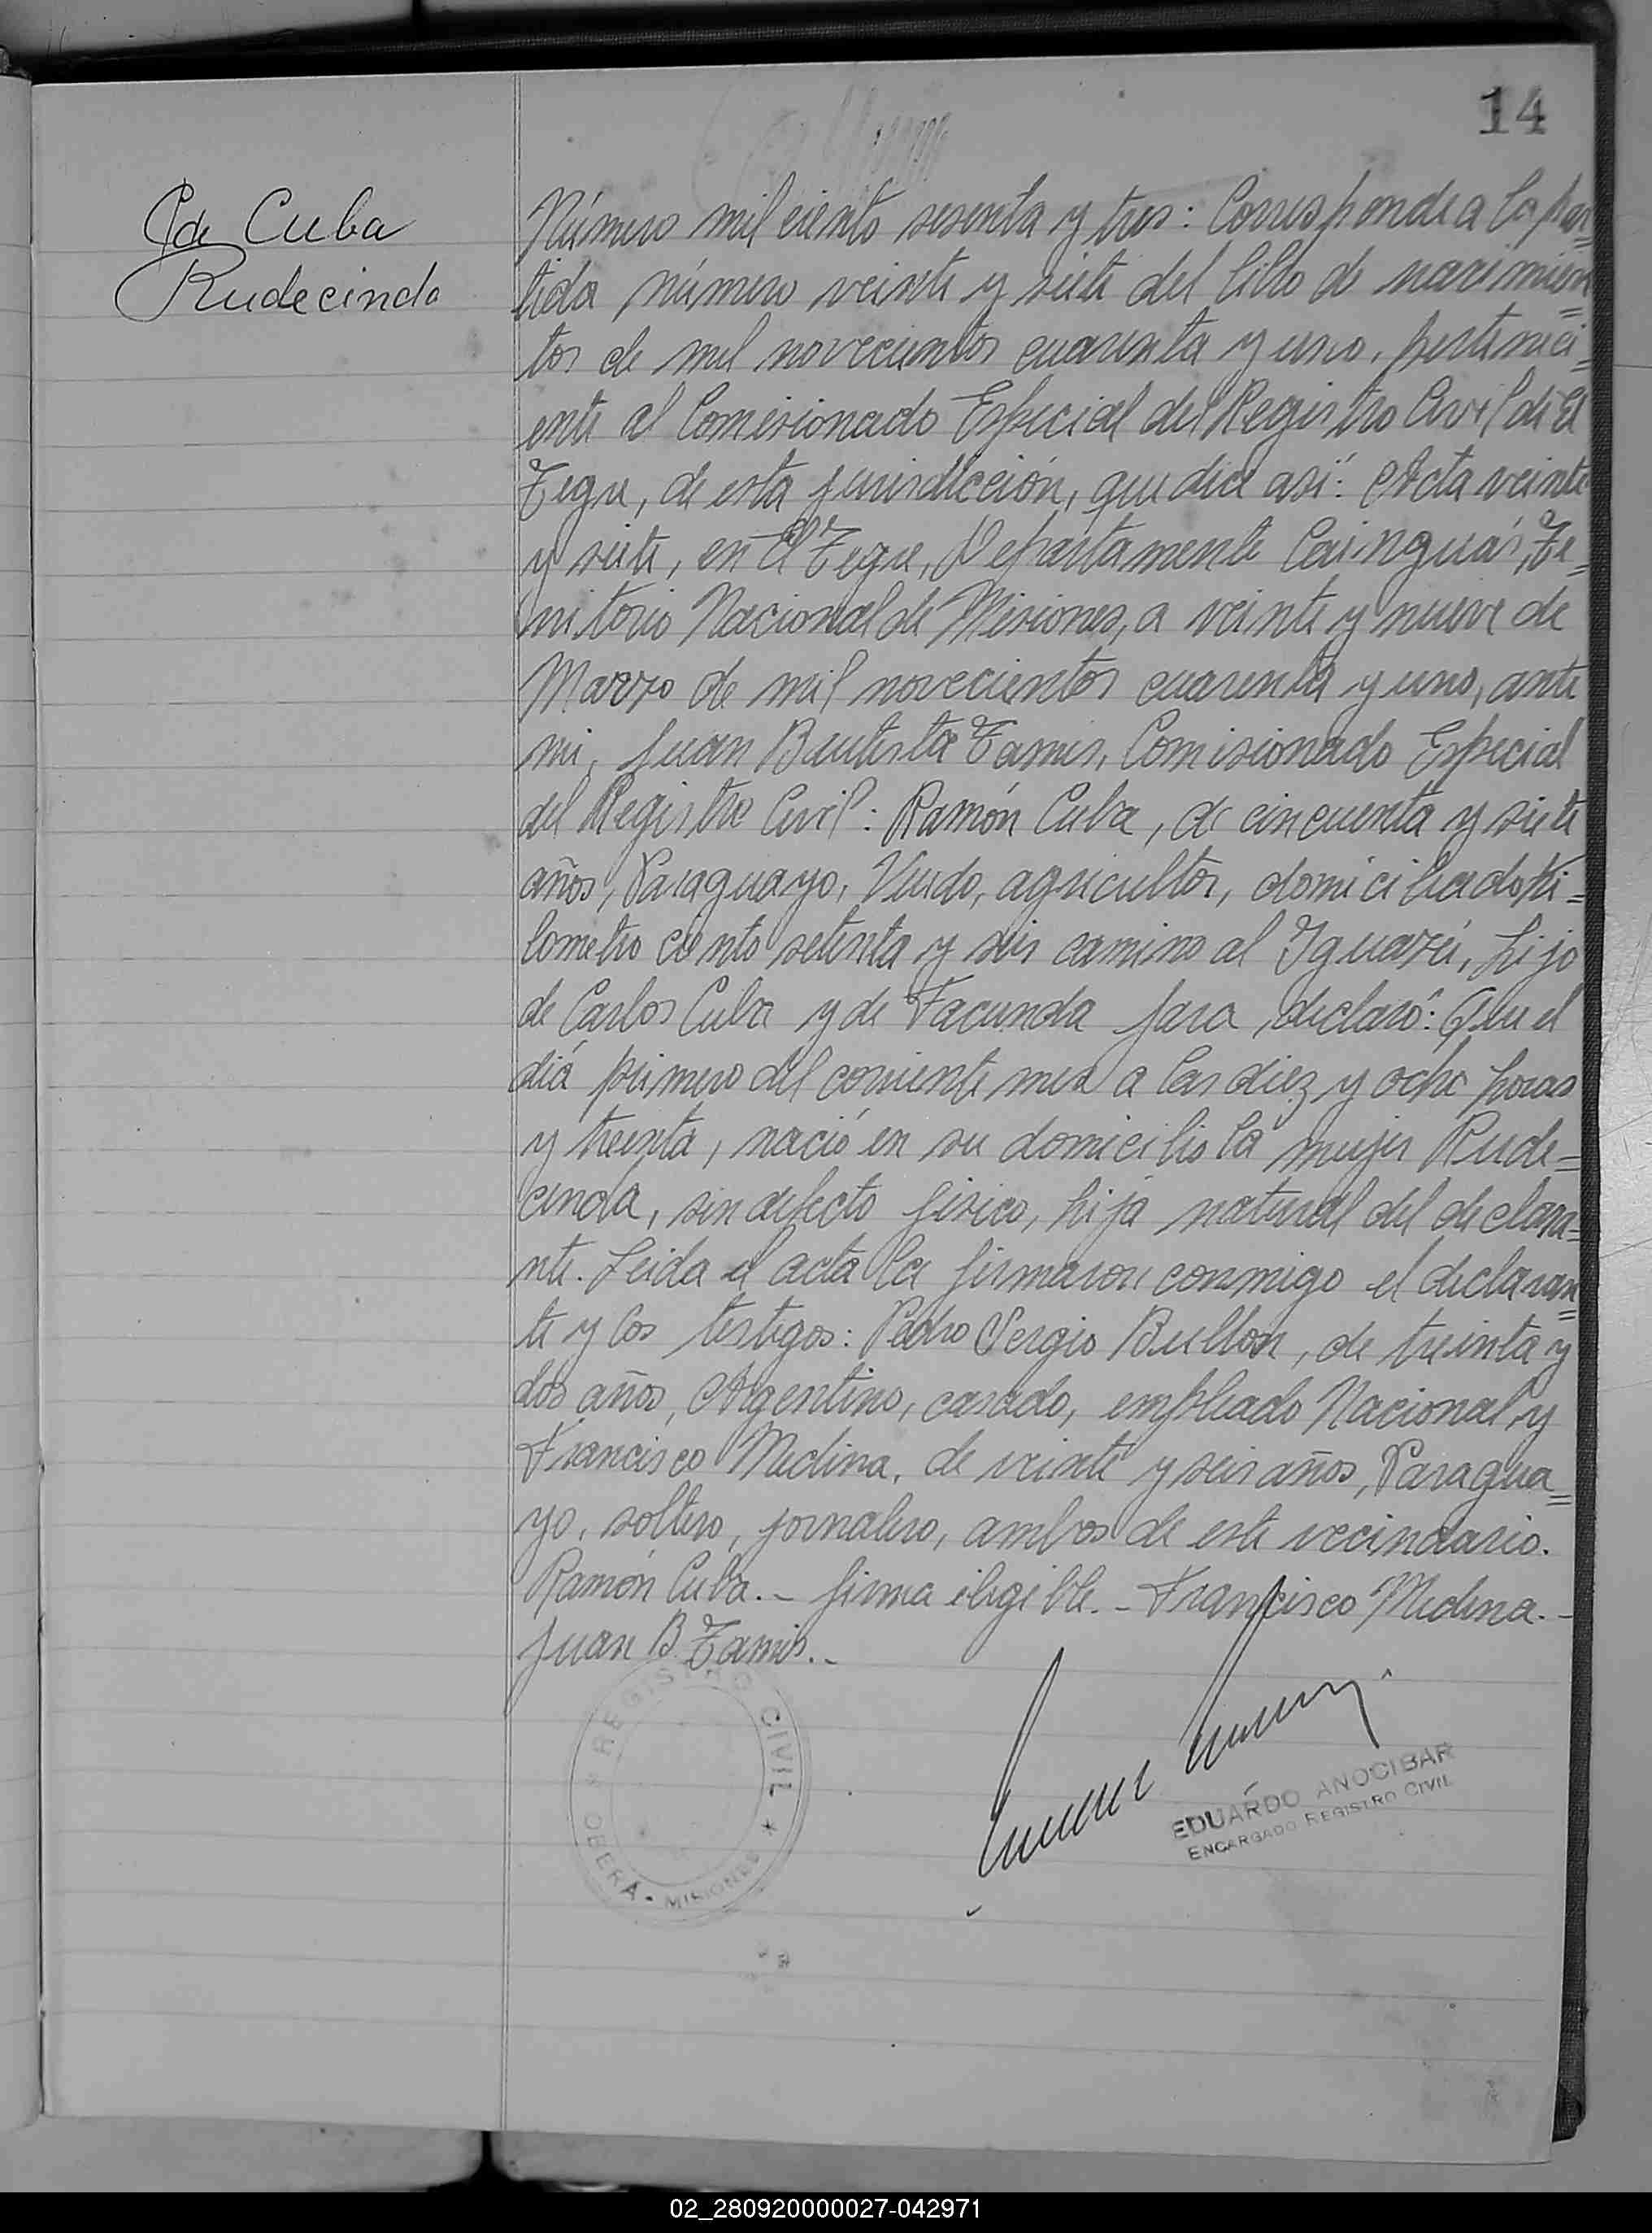 14
Cuba
Rudecinda
Número mil ciento sesenta y tres: Corresponde a la par=
tida número veinte y siete del libro de nacimien=
tos de mil novecientos cuarenta y uno, perteneci=
ente al Comisionado Especial del Registro Civil de El
Tegu, de esta jurisdicción, que dice así: Acta veinte
y siete, en El Tegu, Departamento Cainguás, Te=
rritorio Nacional de Misiones, a veinte y nueve de
Marzo de mil novecientos cuarenta y uno, ante
mi, Juan Bautista Tamis, Comisionado Especial
del Registro Civil: Ramón Cuba, de cincuenta y siete
años, Paraguayo, Viudo, agricultor, domiciliado ki=
lometro ciento setenta y seis camino al Iguazú, hijo
de Carlos Cuba y de Facunda Jara, declaró: Que el
día primero del corriente mes a las diez y ocho horas
y treinta, nació en su domicilio la mujer Rude=
cinda, sin defecto físico, hija natural del declara=
nte. Leida el acta la firmaron conmigo el declaran=
te y los testigos: Pedro Sergio Bullon, de treinta y
dos años, Argentino, casado, empleado Nacional, y
Francisco Medina, de veinte y seis años, Paragua=
yo, soltero, jornalero, ambos de este vecindario.
Ramón Cuba.- firma ilegible.- Francisco Medina.-
Juan B. Tamis.-
REGISTRO CIVIL * OBERÁ - MISIONES *
EDUARDO ANOCIBAR
ENCARGADO REGISTRO CIVIL
02_280920000027-042971